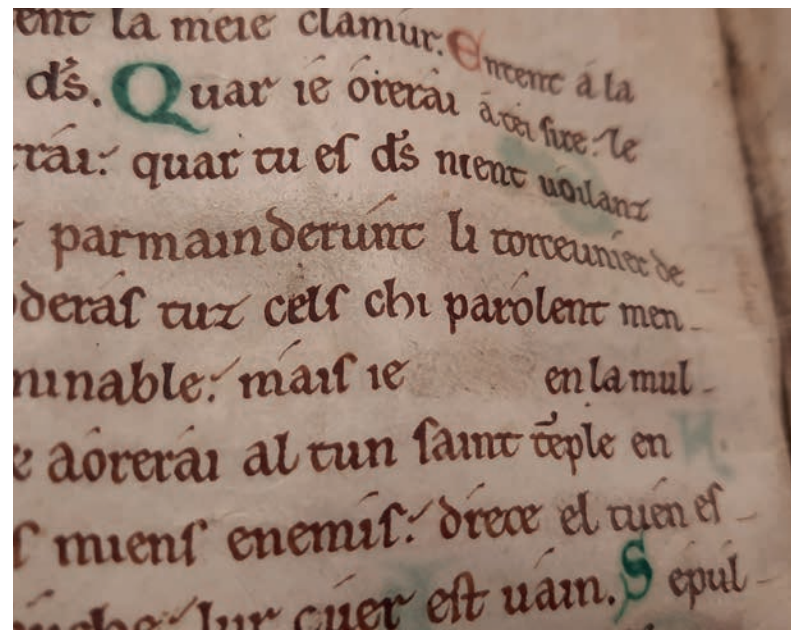 ent la meie clamur. Entent á la
ds̄. Quar ié óreráı á téi sire. Le
ráı: quar tu es ds̄ nient uoilanz
parmainderunt li torceunier de
deras tuz cels chi parolent men-
minable: mais ie en la mul-
e aorerái al tun saint tēple en
s miens enemis: drece el tuen es-
lur cuer est uáin. Sepul-